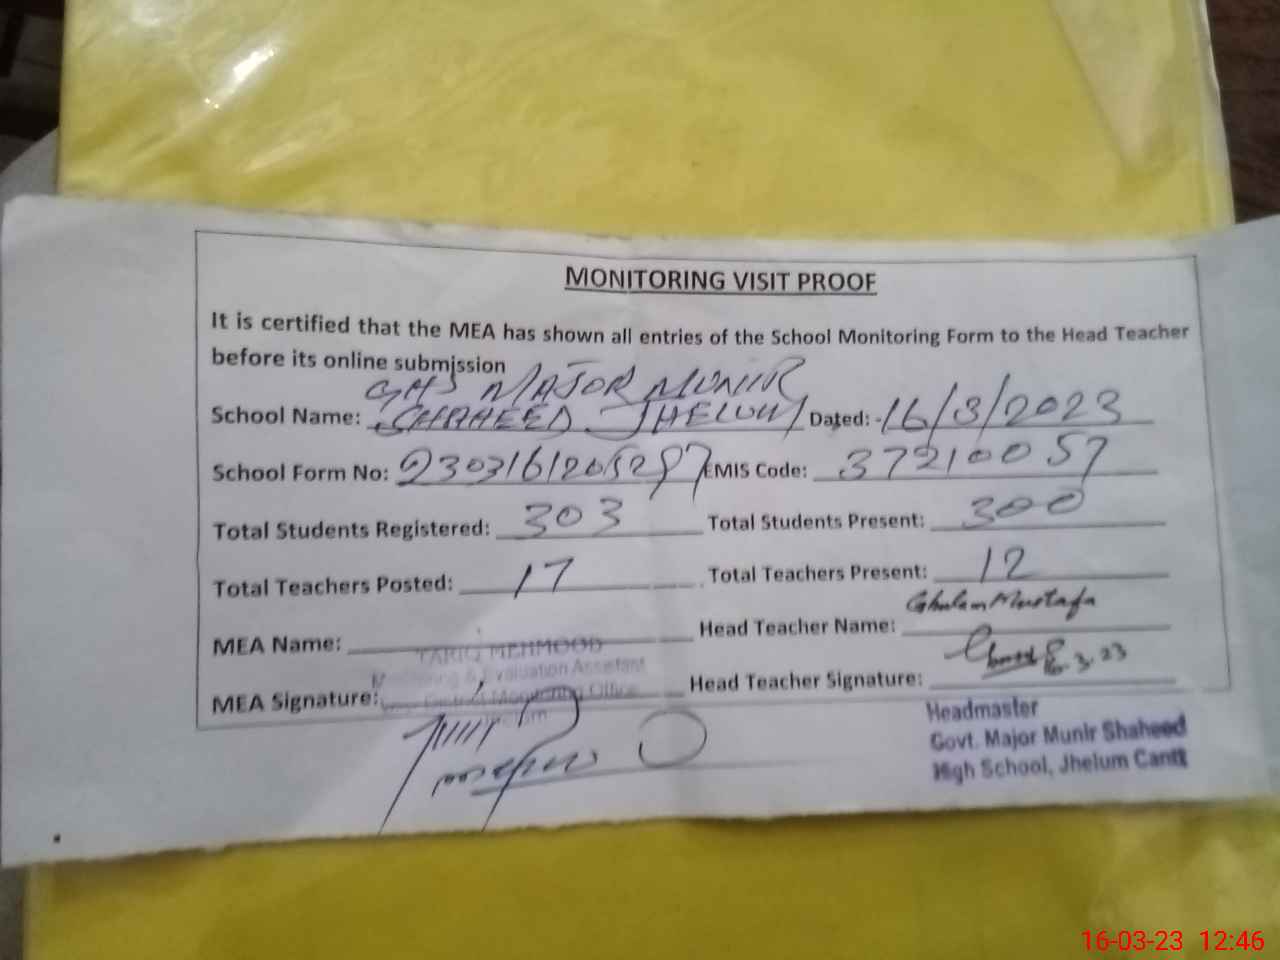 MONITORING VISIT PROOF
It is certified that the MEA has shown all entries of the School Monitoring Form to the Head Teacher
before its online submission
GHS MAJOR MUNIR
School Name: SHAHEED JHELUM Dated: 16/3/2023
School Form No: EMIS Code: 37210057
Total Students Registered: 303 Total Students Present: 300
Total Teachers Posted: 17 Total Teachers Present: 12
MEA Name: Head Teacher Name: Ghulam Mustafa
TARIQ MEHMOOD
Monitoring & Evaluation Assistant
MEA Signature: District Monitoring Office Head Teacher Signature:
Headmaster
Govt. Major Munir Shaheed
High School, Jhelum Cantt
16-03-23 12:46